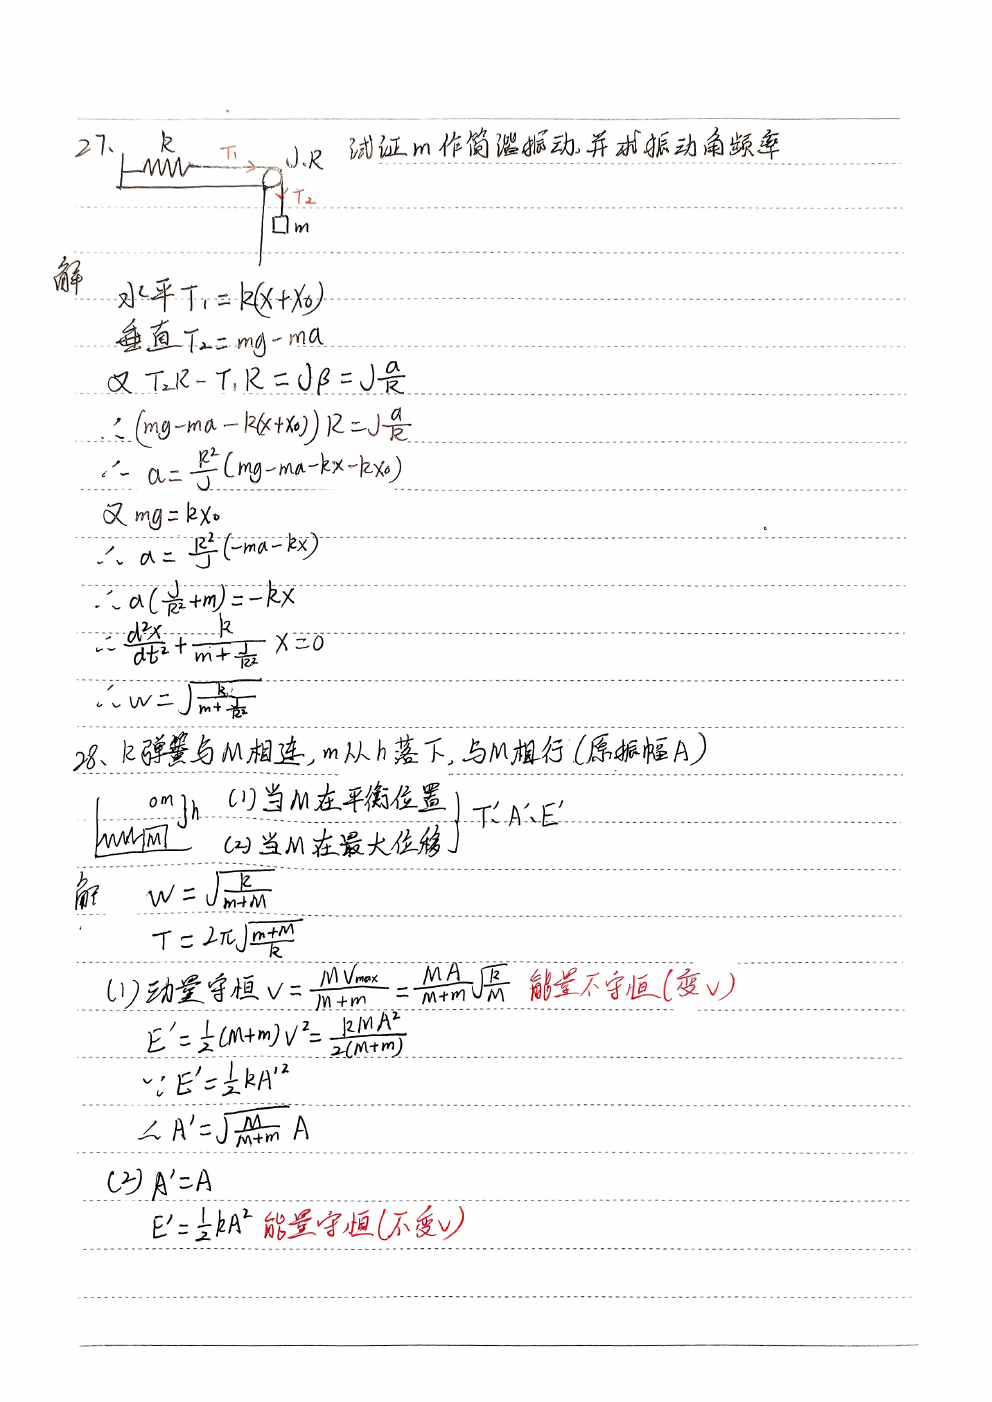 27、 k T₁ J、R 试证m作简谐振动,并求振动角频率
T₂
m
解
水平 T₁ = k(x+x₀)
垂直 T₂ = mg - ma
又 T₂R - T₁R = Jβ = J a/R
∴ (mg-ma-k(x+x₀)) R = J a/R
∴ a = R²/J (mg-ma-kx-kx₀)
又 mg = kx₀
∴ a = R²/J (-ma-kx)
∴ a(J/R² + m) = -kx
∴ d²x/dt² + k/(m+J/R²) x = 0
∴ w = √(k/(m+J/R²))
28、k弹簧与M相连,m从h落下,与M相行(原振幅A)
om h (1)当M在平衡位置
M (2)当M在最大位移 } T'、A'、E'
解 W = √(k/(m+M))
T = 2π√((m+M)/k)
(1) 动量守恒 v = MVmax/(M+m) = MA/(M+m) √(k/M) 能量不守恒(变v)
E' = ½(M+m)V² = kMA²/2(M+m)
∵ E' = ½kA'²
∴ A' = √(M/(M+m)) A
(2) A' = A
E' = ½kA² 能量守恒(不变v)